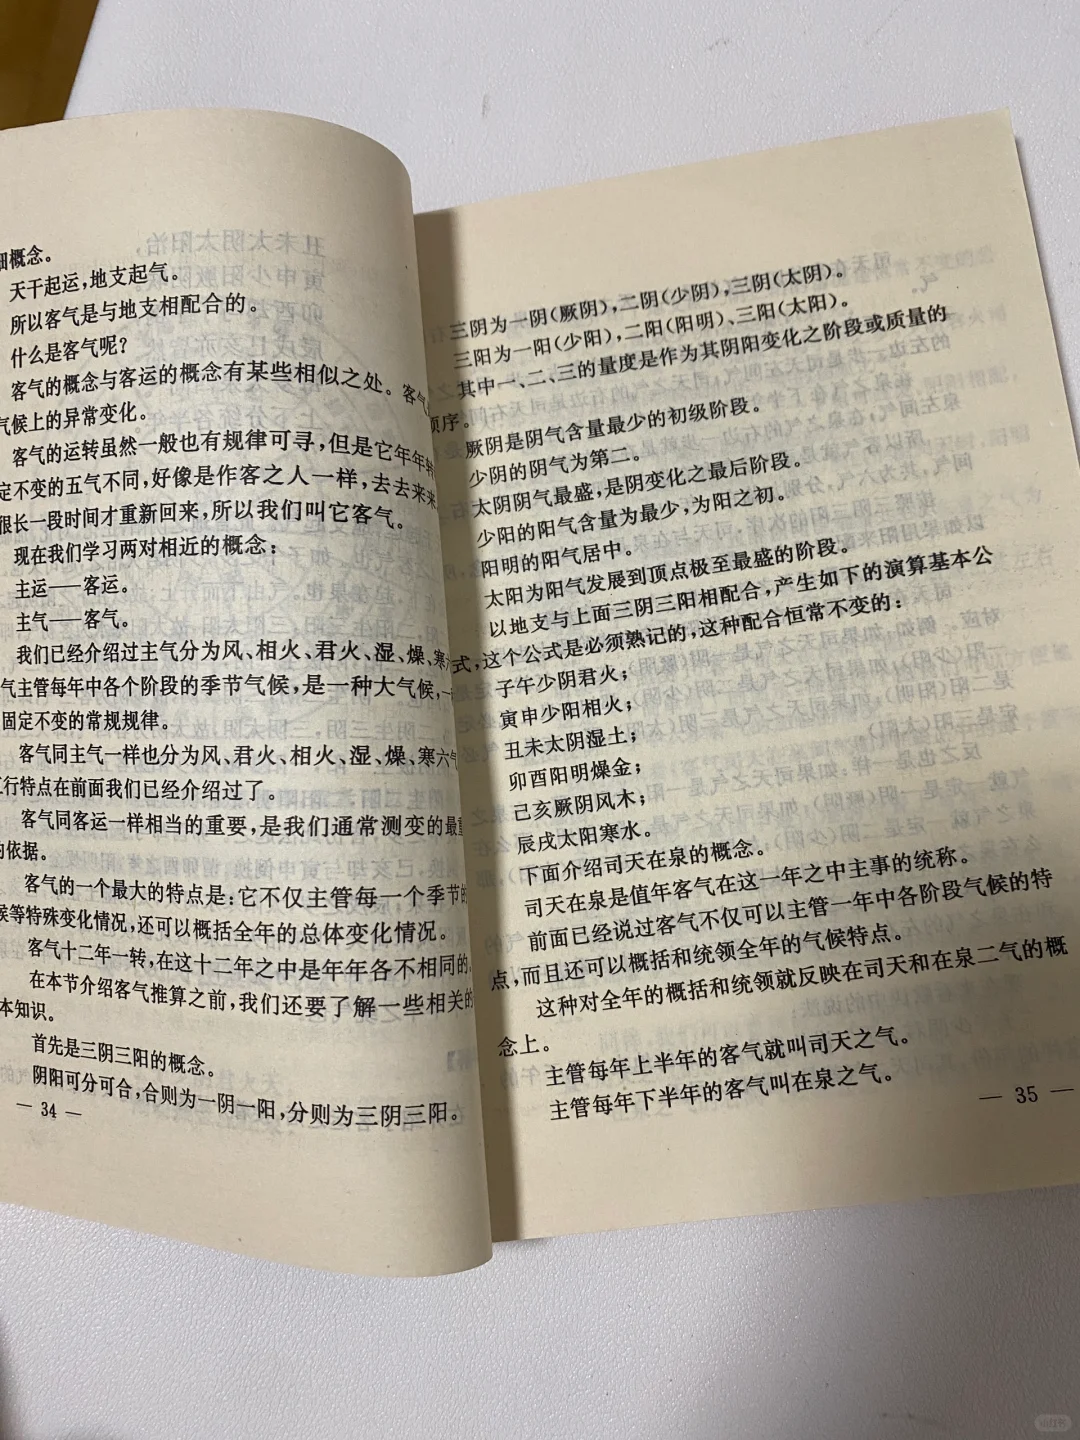 细概念。
天干起运，地支起气。
所以客气是与地支相配合的。
什么是客气呢？
客气的概念与客运的概念有某些相似之处。客气
气候上的异常变化。
客气的运转虽然一般也有规律可寻，但是它年年转
定不变的五气不同，好像是作客之人一样，去去来来
很长一段时间才重新回来，所以我们叫它客气。
现在我们学习两对相近的概念：
主运——客运。
主气——客气。
我们已经介绍过主气分为风、相火、君火、湿、燥、寒
气主管每年中各个阶段的季节气候，是一种大气候，一
固定不变的常规规律。
客气同主气一样也分为风、君火、相火、湿、燥、寒六气
行特点在前面我们已经介绍过了。
客气同客运一样相当的重要，是我们通常测变的最重
的依据。
客气的一个最大的特点是：它不仅主管每一个季节的
候等特殊变化情况，还可以概括全年的总体变化情况。
客气十二年一转，在这十二年之中是年年各不相同的。
在本节介绍客气推算之前，我们还要了解一些相关的
本知识。
首先是三阴三阳的概念。
阴阳可分可合，合则为一阴一阳，分则为三阴三阳。
— 34 —
三阴为一阴（厥阴），二阴（少阴），三阴（太阴）。
三阳为一阳（少阳），二阳（阳明）、三阳（太阳）。
其中一、二、三的量度是作为其阴阳变化之阶段或质量的
顺序。
厥阴是阴气含量最少的初级阶段。
少阴的阴气为第二。
太阴阴气最盛，是阴变化之最后阶段。
少阳的阳气含量为最少，为阳之初。
阳明的阳气居中。
太阳为阳气发展到顶点极至最盛的阶段。
以地支与上面三阴三阳相配合，产生如下的演算基本公
式，这个公式是必须熟记的，这种配合恒常不变的：
子午少阴君火；
寅申少阳相火；
丑未太阴湿土；
卯酉阳明燥金；
己亥厥阴风木；
辰戌太阳寒水。
下面介绍司天在泉的概念。
司天在泉是值年客气在这一年之中主事的统称。
前面已经说过客气不仅可以主管一年中各阶段气候的特
点，而且还可以概括和统领全年的气候特点。
这种对全年的概括和统领就反映在司天和在泉二气的概
念上。
主管每年上半年的客气就叫司天之气。
主管每年下半年的客气叫在泉之气。
— 35 —
小红书